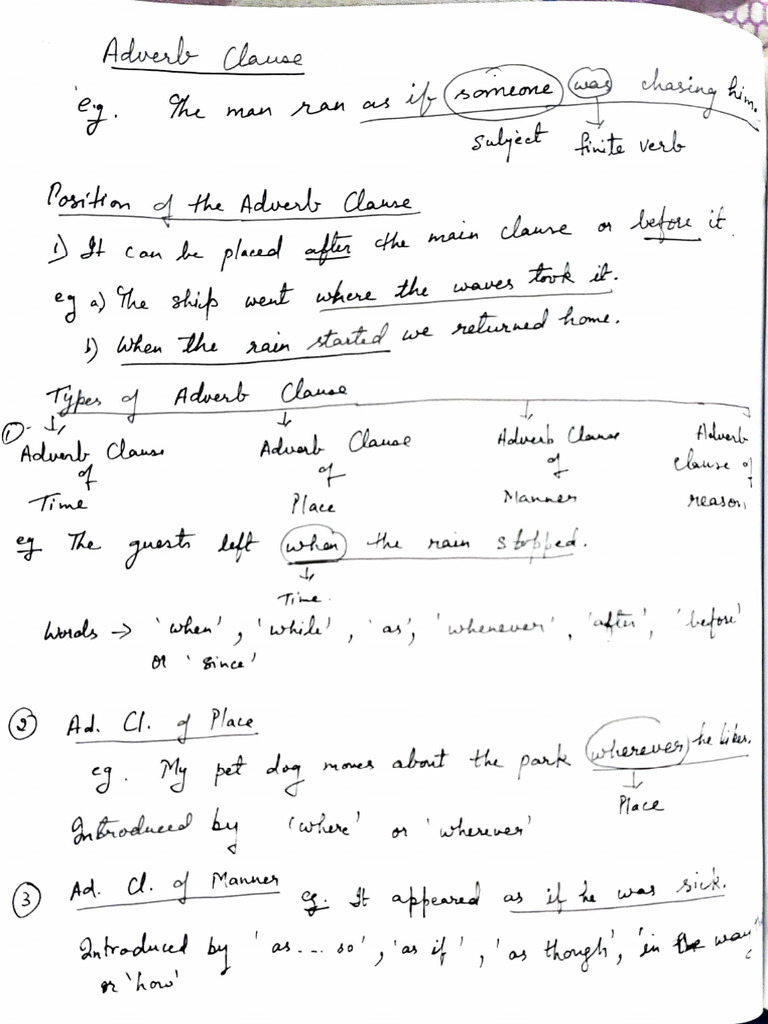 Adverb Clause
e.g. The man ran as if someone was chasing him.
Subject finite verb
Position of the Adverb Clause
1) It can be placed after the main clause or before it.
eg a) The ship went where the waves took it.
b) When the rain started we returned home.
Types of Adverb Clause
① Adverb Clause of Time
Adverb Clause of Place
Adverb Clause of Manner
Adverb clause of reason
eg The guests left when the rain stopped.
Time
Words → 'when', 'while', 'as', 'whenever', 'after', 'before'
or 'since'
② Ad. Cl. of Place
eg. My pet dog moves about the park wherever he likes.
Place
Introduced by 'where' or 'wherever'
③ Ad. Cl. of Manner eg. It appeared as if he was sick.
Introduced by 'as... so', 'as if', 'as though', 'in the way'
or 'how'